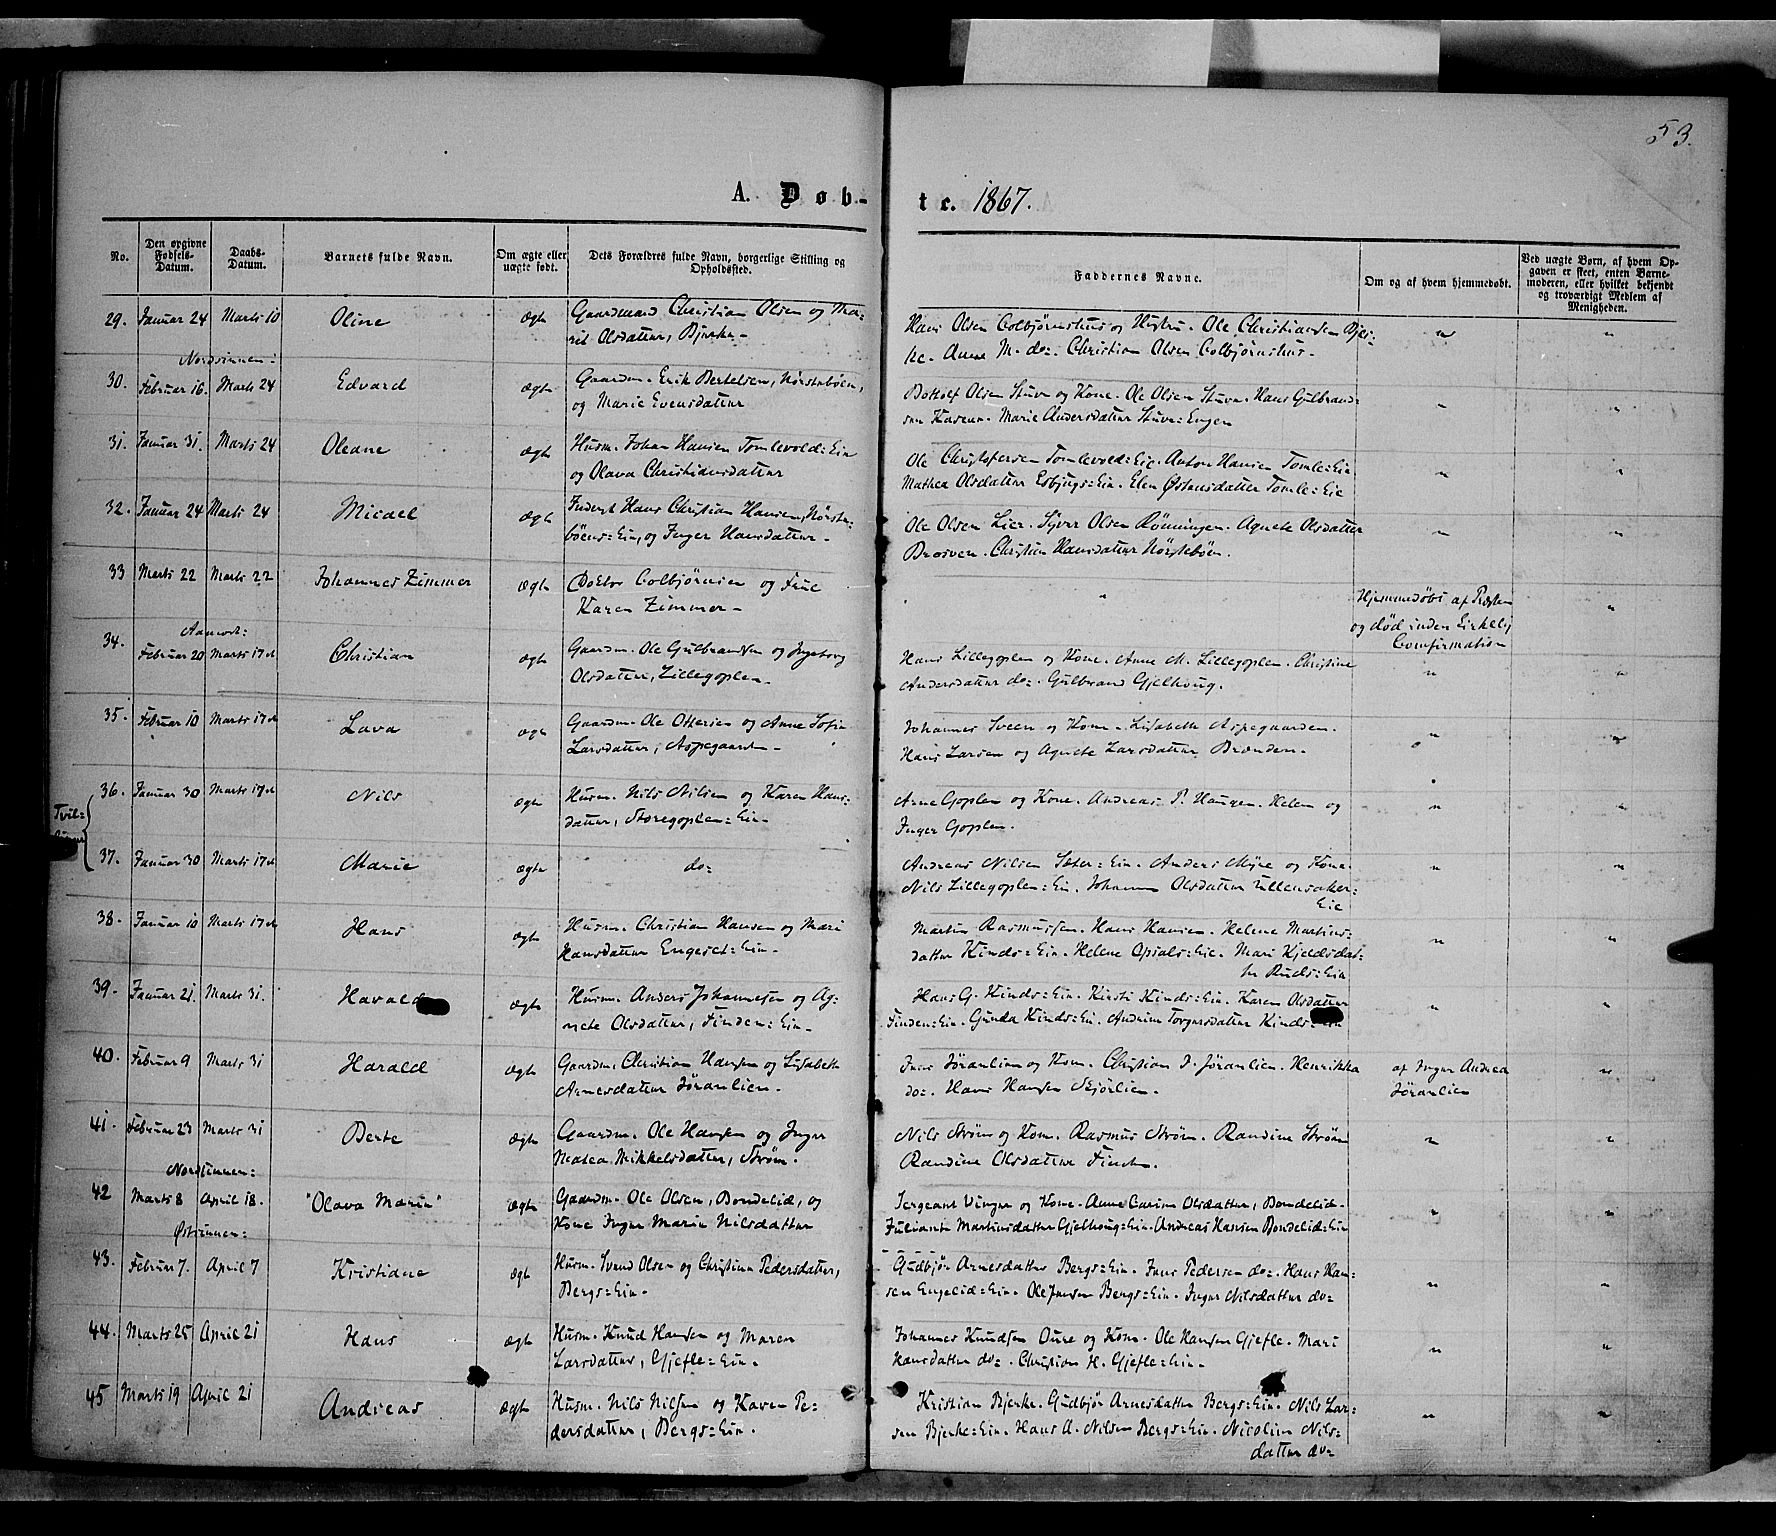 53.
A. Døb-
te. 1867.
No.
Den opgivne Fødsels-Datum.
Daabs-Datum.
Barnets fulde Navn.
Om ægte eller uægte født.
Dets Forældres fulde Navn, borgerlige Stilling og Opholdssted.
Faddernes Navne.
Om og af hvem hjemmedøbt.
Ved uægte Børn, af hvem Opgaven er skeet, enten Barnemoderen, eller hvilket bekjendt og troværdigt Medlem af Menigheden.
29. Januar 24 Marts 10 Oline ægte Gaardmand Christian Olsen og Ma-
rit Olsdatter, Bjerke-
Hans Olsen Colbjørnshus og Hustru. Ole Christiansen Bjer-
ke. Anne M. do=. Christian Olsen Colbjørnshus.
Nordsinnen:
30. Februar 16. Marts 24 Edvard ægte Gaardm. Erik Bertelsen, Nørstebøen,
og Marie Evensdatter
Botholf Olsen Stuve og Kone. Ole Olsen Stuve. Hans Gulbrand-
sen Kasene. Marie Andersdatter Stuve=Engen
31. Januar 31. Marts 24 Oleane ægte Husm. Johan Hansen Tomlevold=Eie
og Olava Christiansdatter
Ole Christophersen Tomlevold=Eie. Anton Hansen Tomle=Eie
Mathea Olsdatter Esbjugs=Eie. Elen Østensdatter Tomle=Eie
32. Januar 24 Marts 24 Micael ægte Inderst Hans Christian Hansen, Nørste-
bøens=Eie, og Inger Hansdatter-
Ole Olsen Lier. Syver Olsen Rønningen. Agnete Olsdatter
Brosven. Christin Hansdatter Nørstebøen.
33 Marts 22 Marts 22 Johannes Zimmer ægte Doktor Colbjørnsen og Frue
Karen Zimmer-
Hjemmedøbt af Præsten
og død inden Kirkelig
Comfirmation
Aamot:
34. Februar 20 Marts 17de Christian ægte Gaardm. Ole Gulbrandsen og Ingeborg
Olsdatter, Lillegoplen-
Hans Lillegoplen og Kone. Anne M. Lillegoplen. Christine
Andersdatter do=. Gulbrand Gjelhoug.
35. Februar 10 Marts 17de Lava ægte Gaardm. Ole Ottersen og Anne Sofie
Larsdatter, Aspegaarden-
Johannes Sveen og Kone. Lisabeth Aspegaarden.
Hans Larsen og Agnete Larsdatter Brænden-
36. Januar 30 Marts 17de Nils ægte Husm. Nils Nilsen og Karen Hans-
datter, Storegoplen=Eie-
Arne Goplen og Kone. Andreas P. Haugen. Helene og
Inger Goplen.
Tvil-
linger
37. Januar 30 Marts 17de Marie ægte do=
Andreas Nilsen Sæter=Eie. Anders Myre og Kone.
Nils Lillegoplen=Eie. Johanne Olsdatter Ullensaker=
Eie
38. Januar 10 Marts 17de Hans ægte Husm. Christian Hansen og Mari
Hansdatter Engeset=Eie-
Martin Rasmussen. Hans Hansen. Helene Martins-
datter Kinds=Eie. Helene Opsals=Eie. Mari Kjeldsdat-
ter Ruds=Eie
39. Januar 21. Marts 31. Harald ægte Husm. Anders Johannesen og Ag-
nete Olsdatter, Finden=Eie-
Hans G. Kinds=Eie. Kirsti Kinds=Eie. Karen Olsdatter
Finden=Eie. Gunda Kinds=Eie. Andrine Torgersdatter Kinds=Eie
40. Februar 9 Marts 31 Harald ægte Gaardm. Christian Hansen og Lisabeth
Arnesdatter Jøranlien.
Jens Jøranlien og Kone. Christian J. Jøranlien. Henrikka
do=. Hans Hansen Skjørlien.
af Inger Andrea
Jøranlien
41. Februar 23 Marts 31 Berte ægte Gaardm. Ole Hansen og Inger
Malea Mikkelsdatter, Strøm.
Nils Strøm og Kone. Rasmus Strøm. Randine Strøm
Randine Olsdatter Finden.
Nordsinnen:
42 Marts 8 April 18. "Olava Marie" ægte Gaardm. Ole Olsen, Bondelid, og
Kone Inger Marie Nilsdatter
Sergeant Vinger og Kone. Anne Carine Olsdatter, Bondelid.
Juliane Martinsdatter Gjelhoug=Eie. Andreas Hansen Bondelid=Eie
Østsinnen:
43. Februar 7. April 7 Kristiane ægte Husm. Svend Olsen og Christine Pedersdatter,
Bergs=Eie.
Gudbjør Arnesdatter Bergs=Eie. Jens Pedersen do=. Hans Han-
sen Engelid=Eie. Ole Jensen Bergs=Eie. Inger Nilsdatter do=
44. Marts 25 April 21 Hans ægte Husm. Knud Hansen og Maren
Larsdatter, Gjefle=Eie.
Johannes Knudsen Oure og Kone. Ole Hansen Gjefle. Mari
Hansdatter do=. Christian H. Gjefle=Eie.
45 Marts 19 April 21 Andreas ægte Husm. Nils Nilsen og Karen Pe-
dersdatter, Bergs=Eie.
Kristian Bjerke. Gudbjør Arnesdatter Bergs=Eie. Nils Lar-
sen Bjerke=Eie. Hans A. Nilsen Bergs=Eie. Nicoline Nils-
datter do=